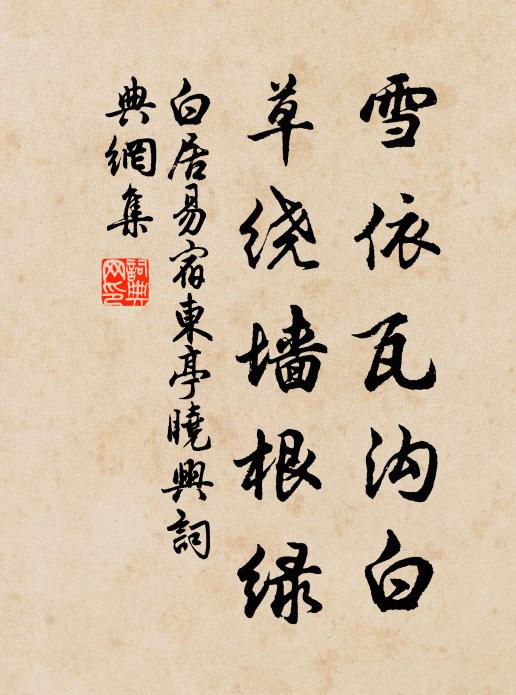 雪依瓦沟白
草绕墙根绿
白居易宿東亭曉興詞
典網集
詞典
网印